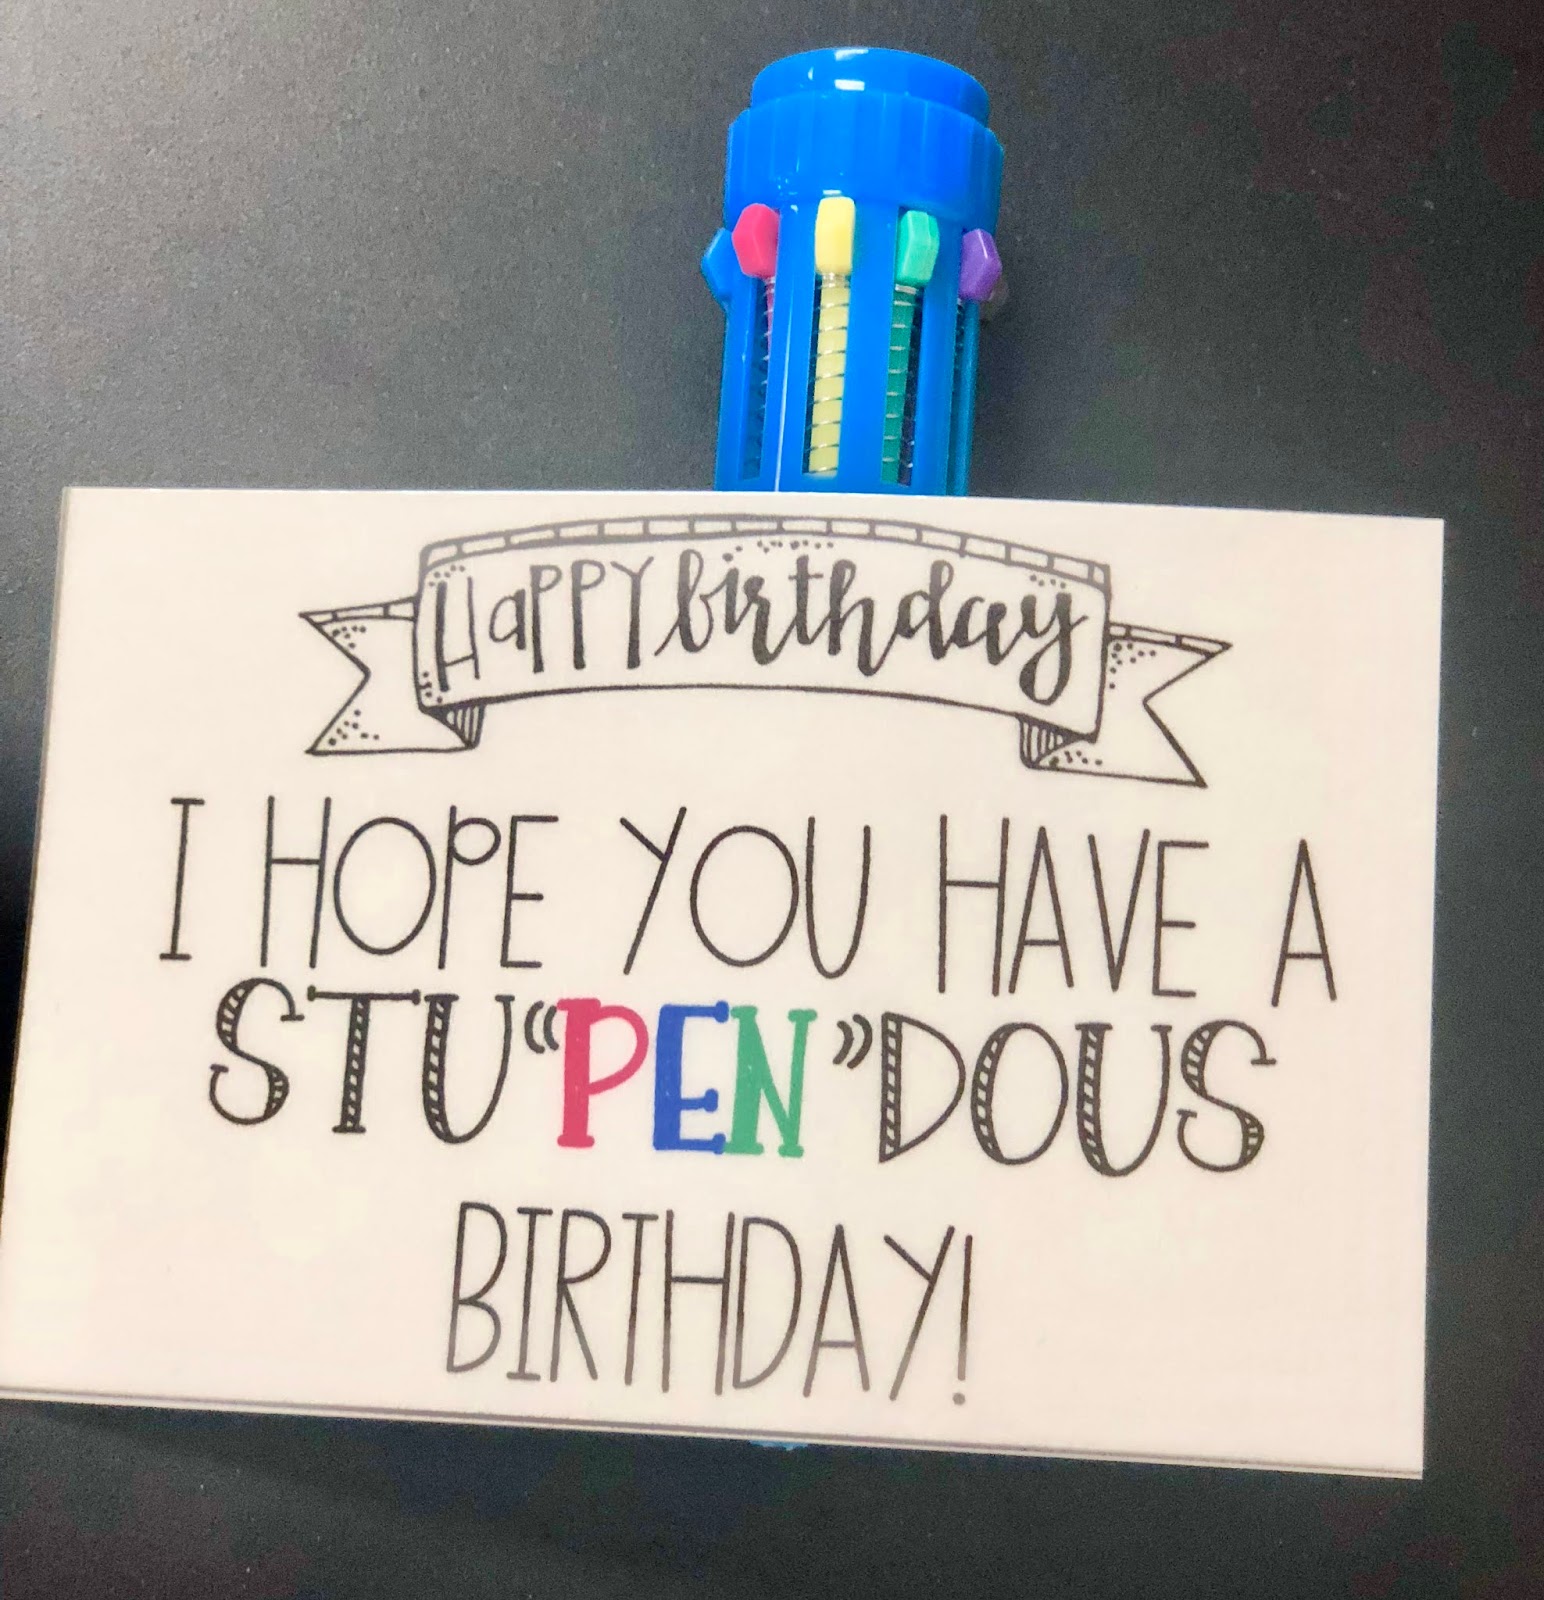 HaPPY birthday
I HOPE YOU HAVE A
STU“PEN”DOUS
BIRTHDAY!